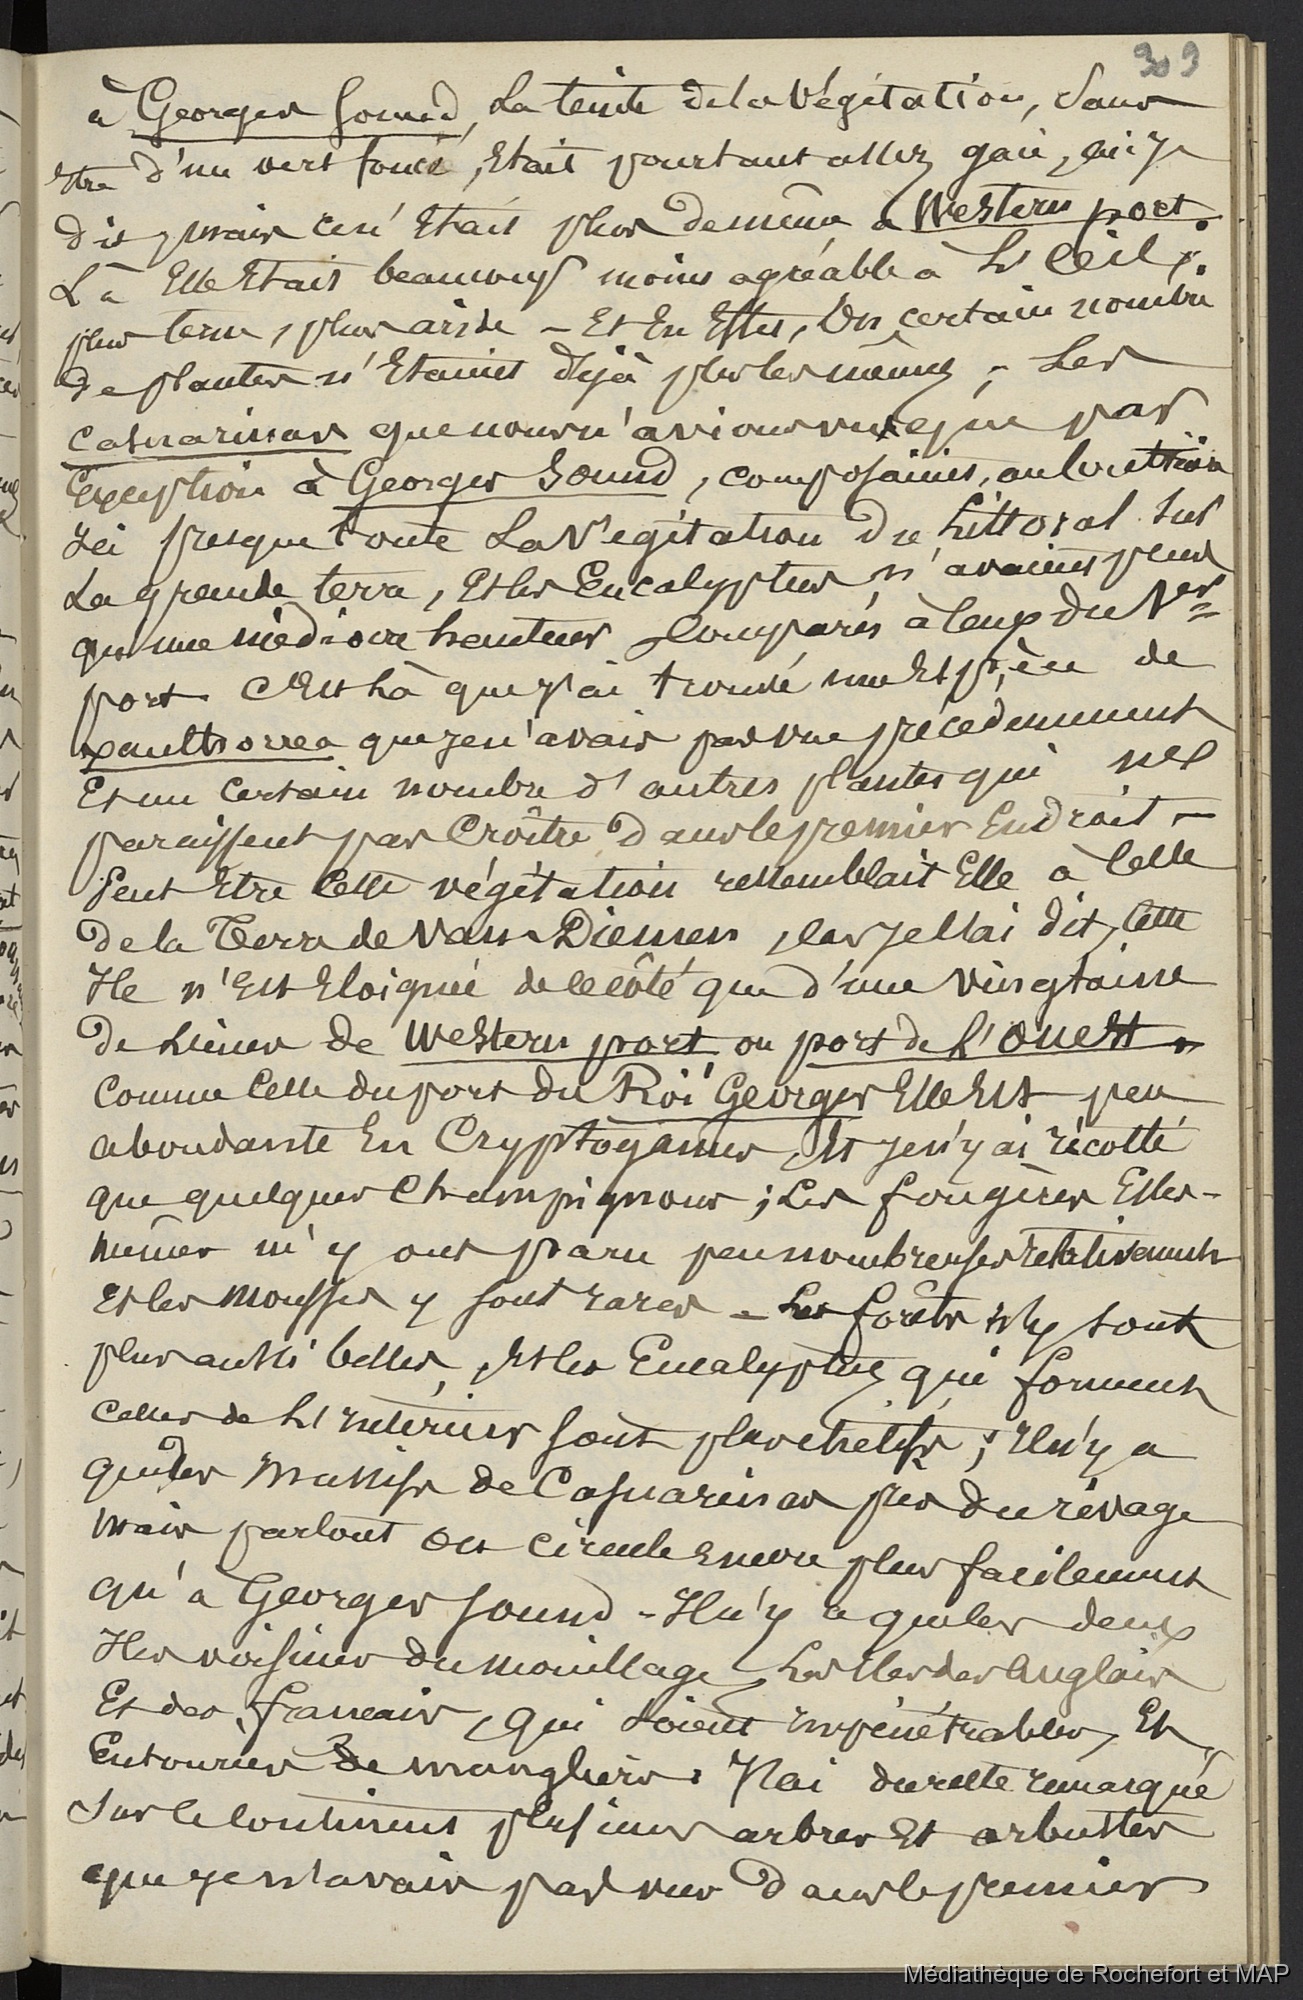 309
à Georges Sound, La teinte de la Végétation, Sans
Etre d'un vert foncé, Etait pourtant assez gaie, ai je
dit, mais ce n'Etait plus de même à Western port.
Là Elle Etait beaucoup moins agréable à L'oeil,
plus terne, plus aride - Et En Effet, Un certain nombre
de plantes n'Etaient déjà plus les mêmes, - Les
casuarinas que nous n'avions vus que par
Exception à Georges Sound, composaient, au contraire
Ici presque toute La Végétation du Littoral sur
La grande terre, Et les Eucalyptus n'avaient plus
qu'une médiocre hauteur comparés à ceux du 1er
port. C'Est Là que j'ai trouvé une Espèce de
xanthorrea que je n'avais pas vue précédemment
Et un certain nombre d'autres plantes qui ne
paraissent pas Croître dans le premier Endroit -
Peut Etre Cette végétation ressemblait Elle à Celle
de la Terre de Van-Diemen, car je l'ai dit, Cette
Ile n'Est Eloignée de ce côté que d'une vingtaine
de Lieues de Western port ou port de L'Ouest -
Comme Celle du port du Roi Georges Elle Est peu
abondante En Cryptogames, Et je n'y ai récolté
que quelques Champignons; Les fougères Elles-
mêmes m'y ont paru peu nombreuses relativement
Et les Mousses y sont rares - Les forêts n'y sont
plus aussi belles, Et les Eucalyptus qui forment
celles de L'Intérieur sont plus chétifs; Il n'y a
que des Massifs de Casuarinas près du rivage
Mais partout on circule Encore plus facilement
qu'à Georges Sound - Il n'y a que les deux
Iles voisines du mouillage, Les Iles des Anglais
Et des français, qui soient Impénétrables, Et
Entourées de mangliers. J'ai du reste remarqué
Sur le Continent plusieurs arbres Et arbustes
que je n'avais pas vus dans le premier
Médiathèque de Rochefort et MAP